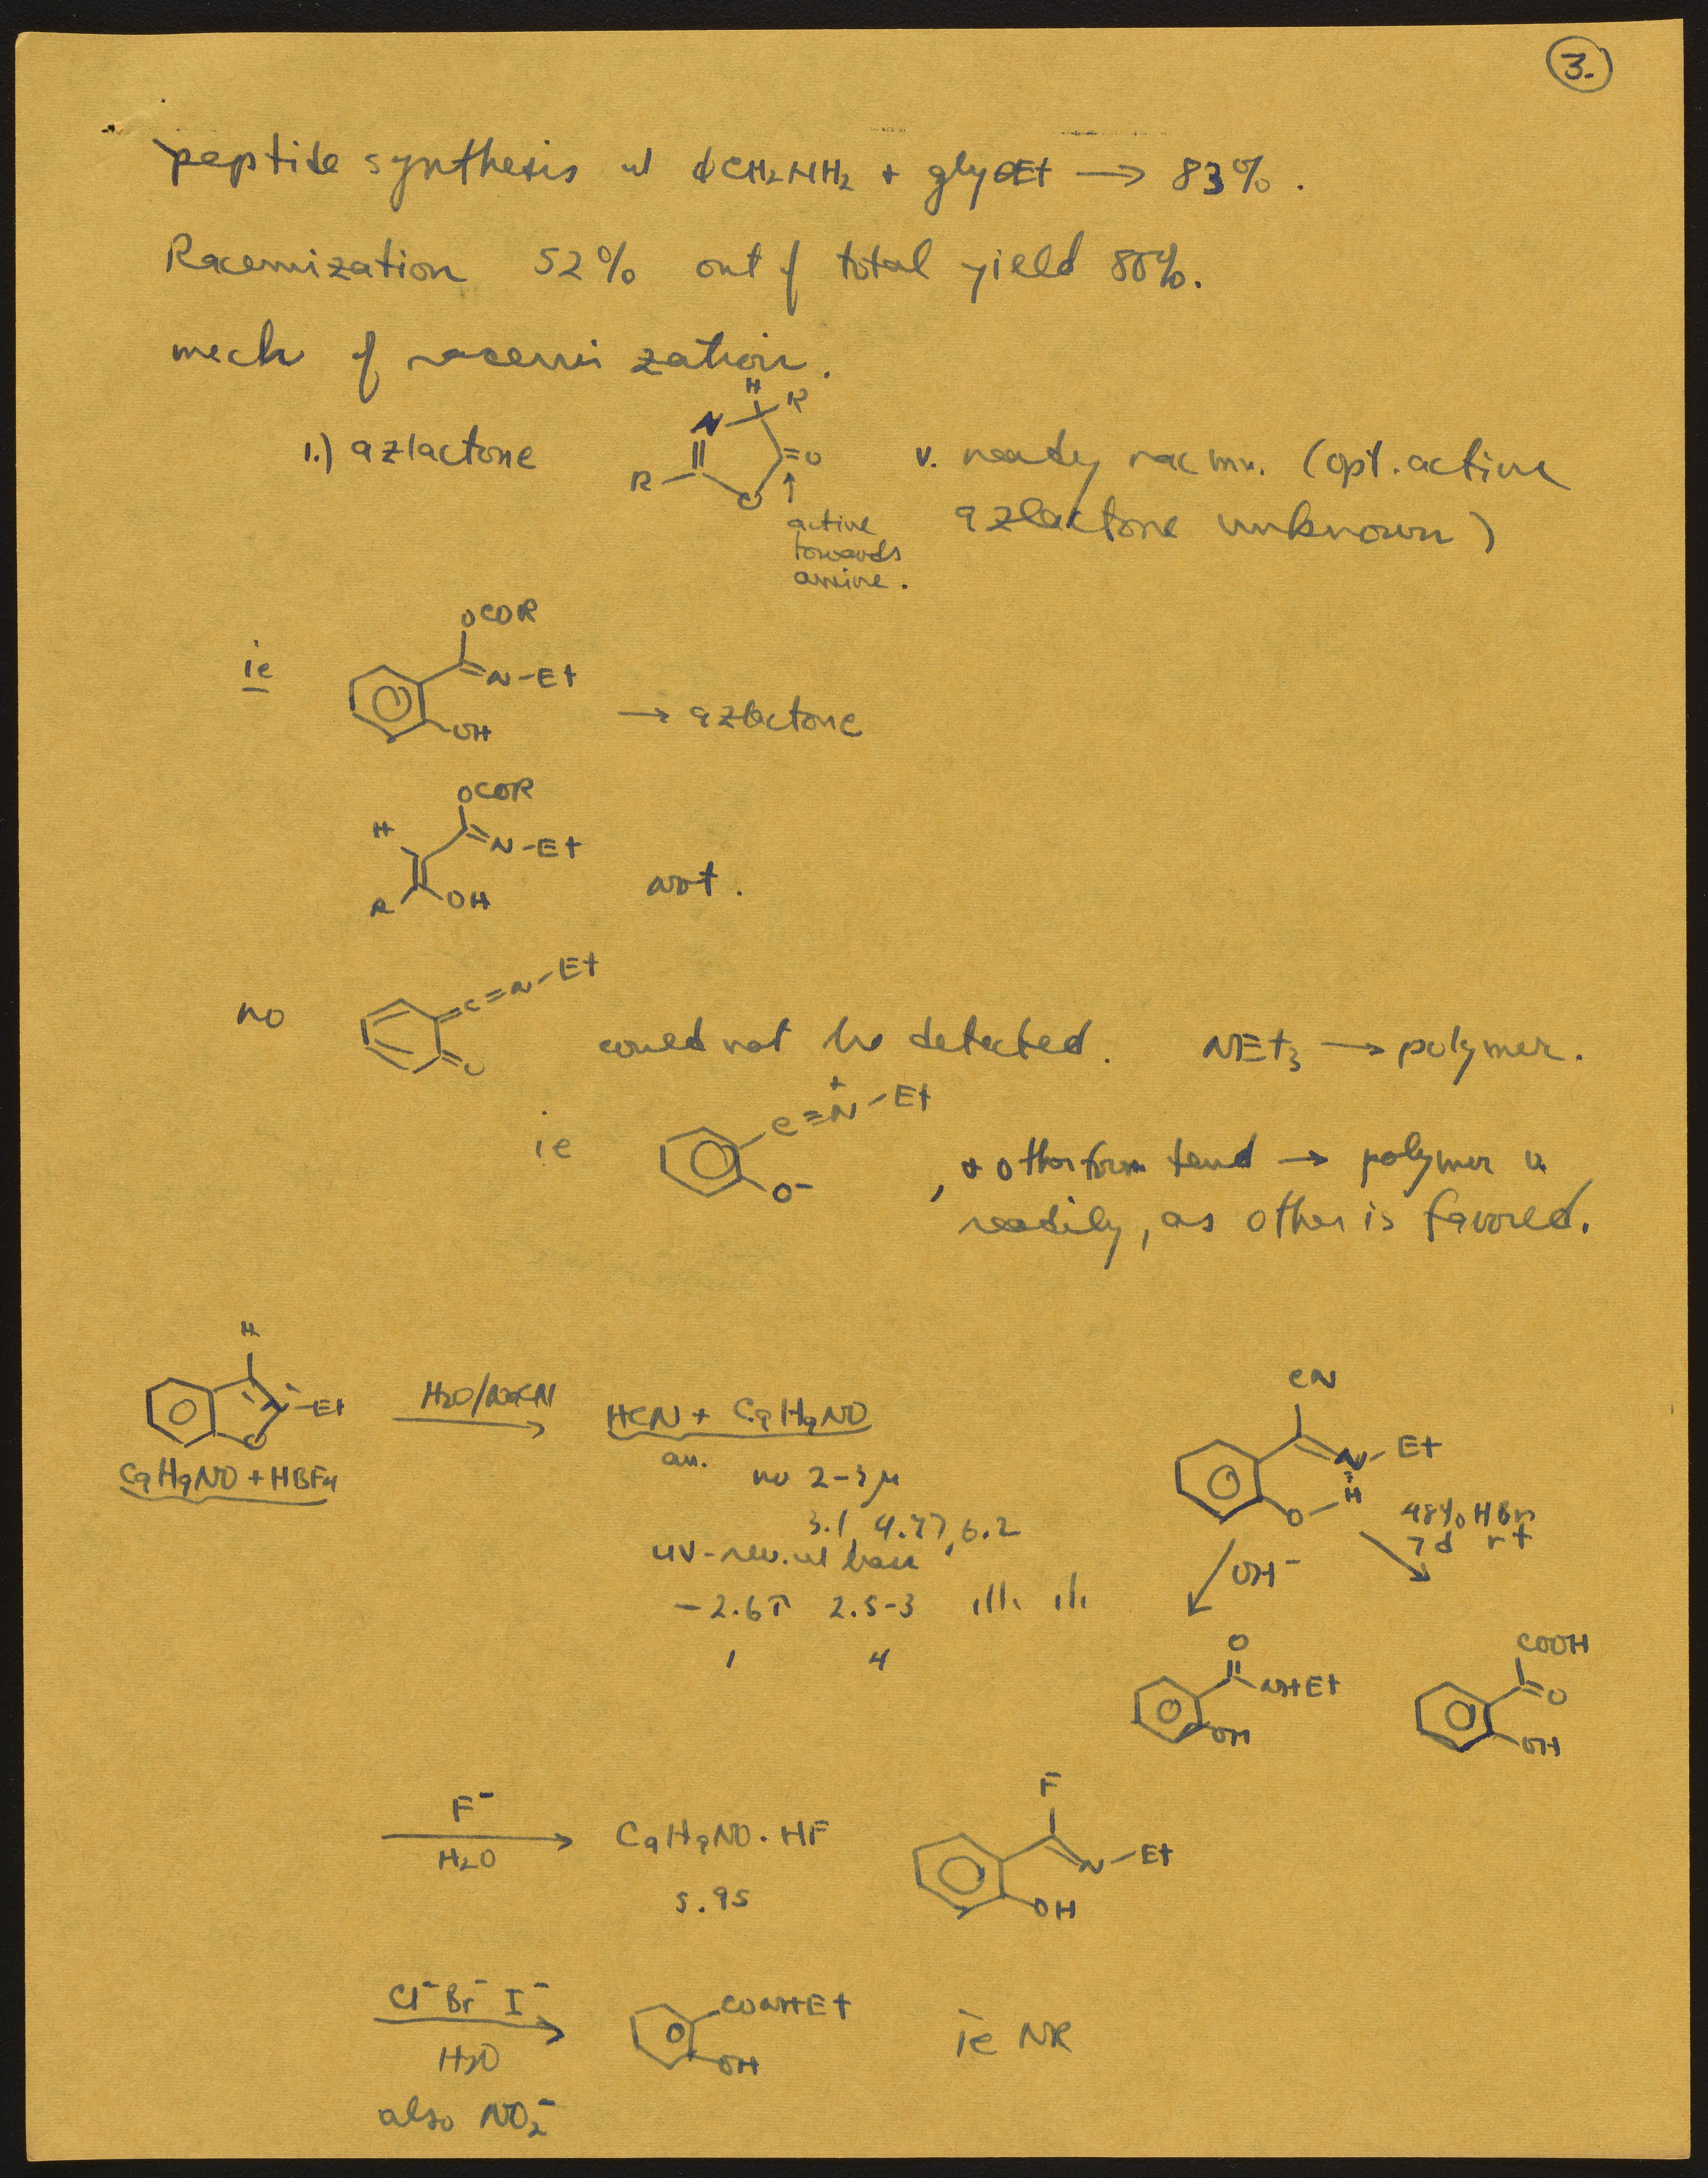 3.
peptide synthesis w/ ϕCH₂NH₂ + glyOEt → 83%.
Racemization 52% out of total yield 80%.
mech of racemization.
1.) azlactone
H
R
N
=O
R
O
↑
active
towards
amine.
v. ready racmn. (opt. active
azlactone unknown)
ie
OCOR
N-Et
OH
→ azlactone
OCOR
H
N-Et
R
OH
not.
no
C=N-Et
O
could not be detected. NEt₃ → polymer.
ie
C≡N⁺-Et
O⁻
, & other form tend → polymer v.
readily, as other is favored.
H
N-Et
O
C₉H₉NO + HBF₄
H₂O/NaCN
HCN + C₉H₉NO
an.
no 2-3μ
3.1, 4.47, 6.2
UV-rev. w/ base
-2.6τ 2.5-3
1 4
CN
N-Et
H
O
OH⁻
48% HBr
7d rt
O
NHEt
OH
COOH
=O
OH
F⁻
H₂O
C₉H₉NO·HF
5.95
F
N-Et
OH
Cl⁻ Br⁻ I⁻
H₂O
also NO₂⁻
CONHEt
OH
ie NR